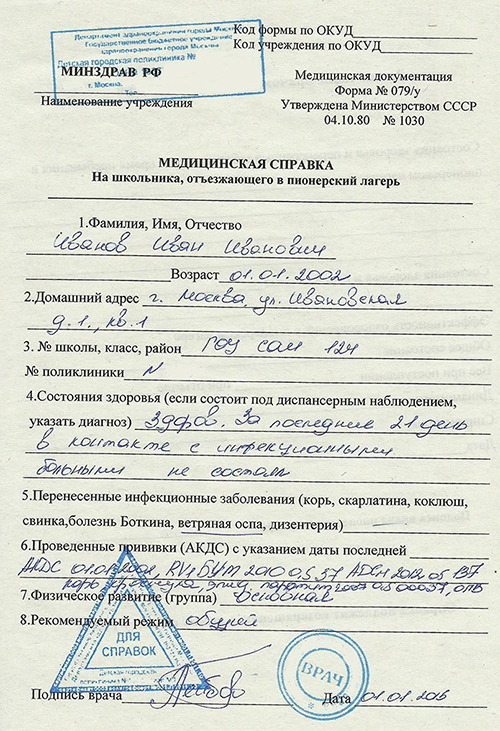 Департамент здравоохранения города Москвы
Государственное бюджетное учреждение
здравоохранения города Москвы
Детская городская поликлиника №
г. Москва,
Тел.
Код формы по ОКУД
Код учреждения по ОКУД
МИНЗДРАВ РФ
Наименование учреждения
Медицинская документация
Форма № 079/у
Утверждена Министерством СССР
04.10.80 № 1030
МЕДИЦИНСКАЯ СПРАВКА
На школьника, отъезжающего в пионерский лагерь
1.Фамилия, Имя, Отчество
Иванов Иван Иванович
Возраст 01.01.2002
2.Домашний адрес г. Москва, ул. Ивановская
д.1., кв.1
3. № школы, класс, район ГОУ СОШ 124
№ поликлиники N
4.Состояния здоровья (если состоит под диспансерным наблюдением,
указать диагноз) Здоров. За последние 21 день
в контакте с инфекционными
больными не состоял
5.Перенесенные инфекционные заболевания (корь, скарлатина, коклюш,
свинка,болезнь Боткина, ветряная оспа, дизентерия)
6.Проведенные прививки (АКДС) с указанием даты последней
АКДС
7.Физическое развитие (группа) основная
8.Рекомендуемый режим общий
ДЛЯ
СПРАВОК
ВРАЧ
Подпись врача
Дата 01.01.2015